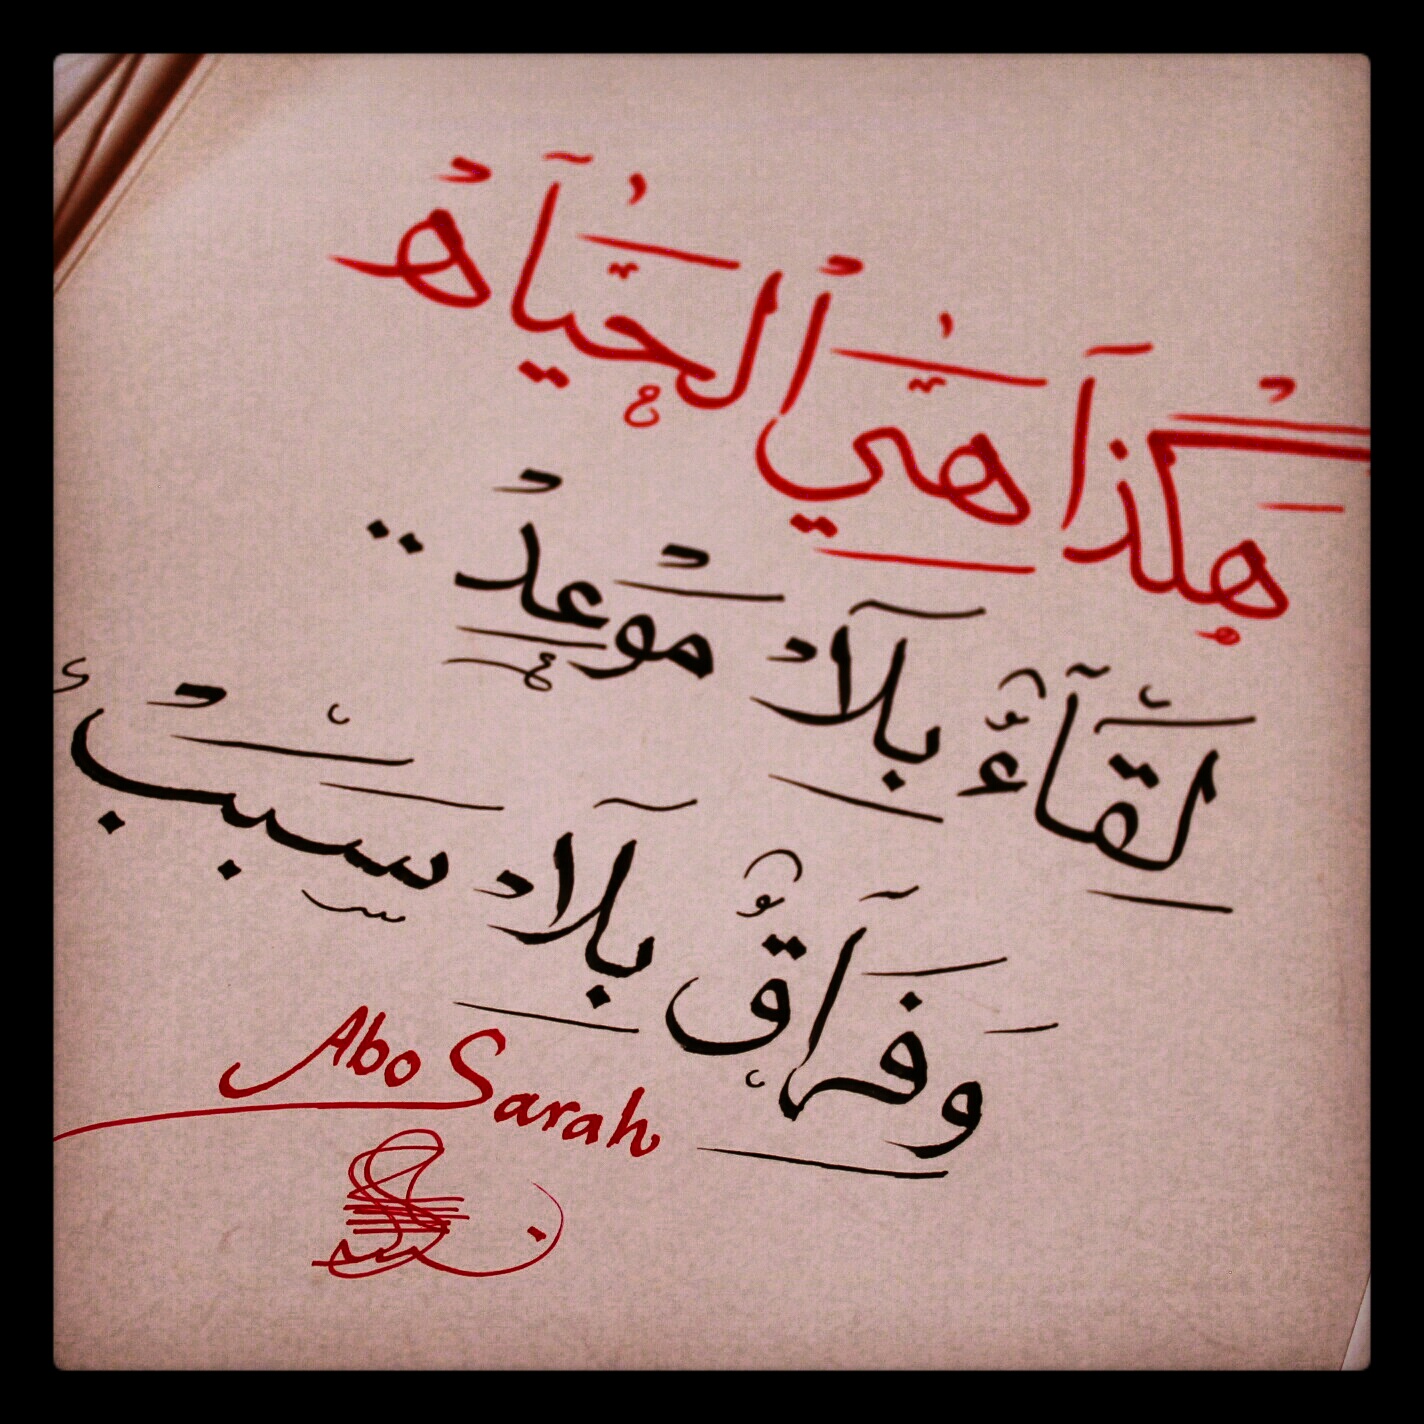 هكذا هي الحياه
لقاء بلا موعد ..
وفراق بلا سبب
Abo Sarah